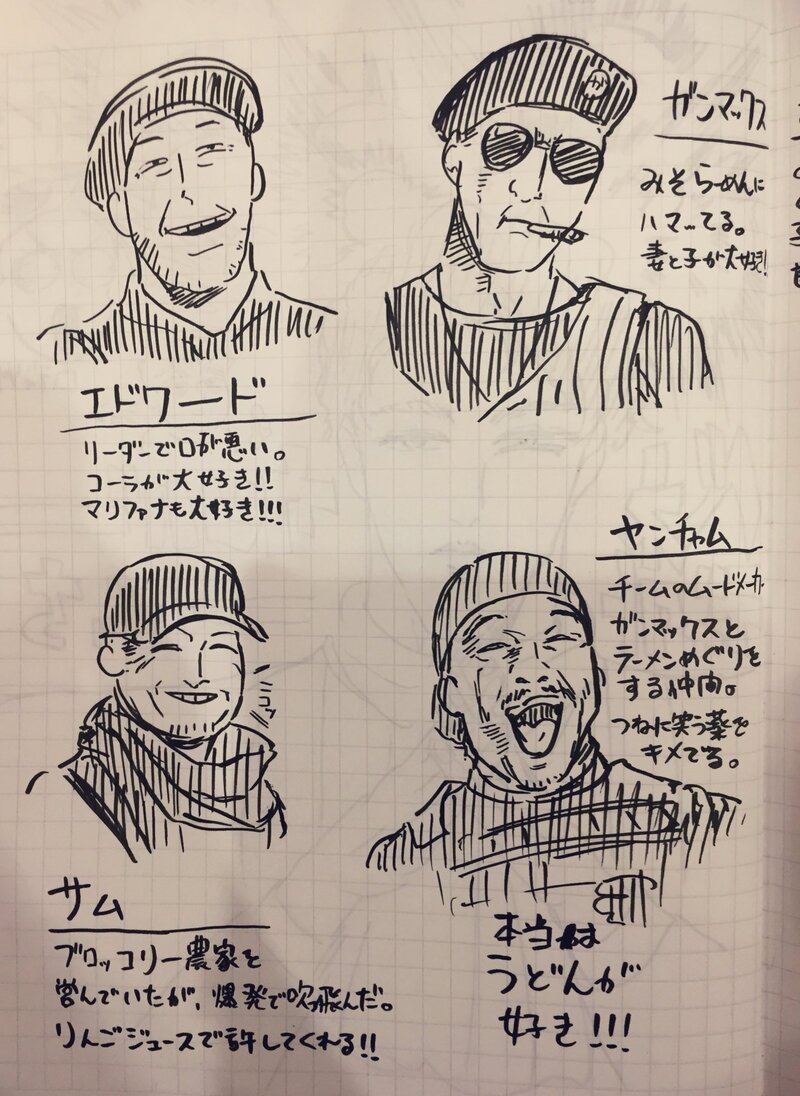 ガンマックス
みそらーめんに
ハマってる。
妻と子が大好き!
エドワード
リーダーで口が悪い。
コーラが大好き!!
マリファナも大好き!!!
ヤンチャム
チームのムードメーカー
ガンマックスと
ラーメンめぐりを
する仲間。
つねに笑う薬で
キメてる。
本当は
うどんが
好き!!!
ニコッ
サム
ブロッコリー農家を
営んでいたが、爆発で吹飛んだ。
りんごジュースで許してくれる!!